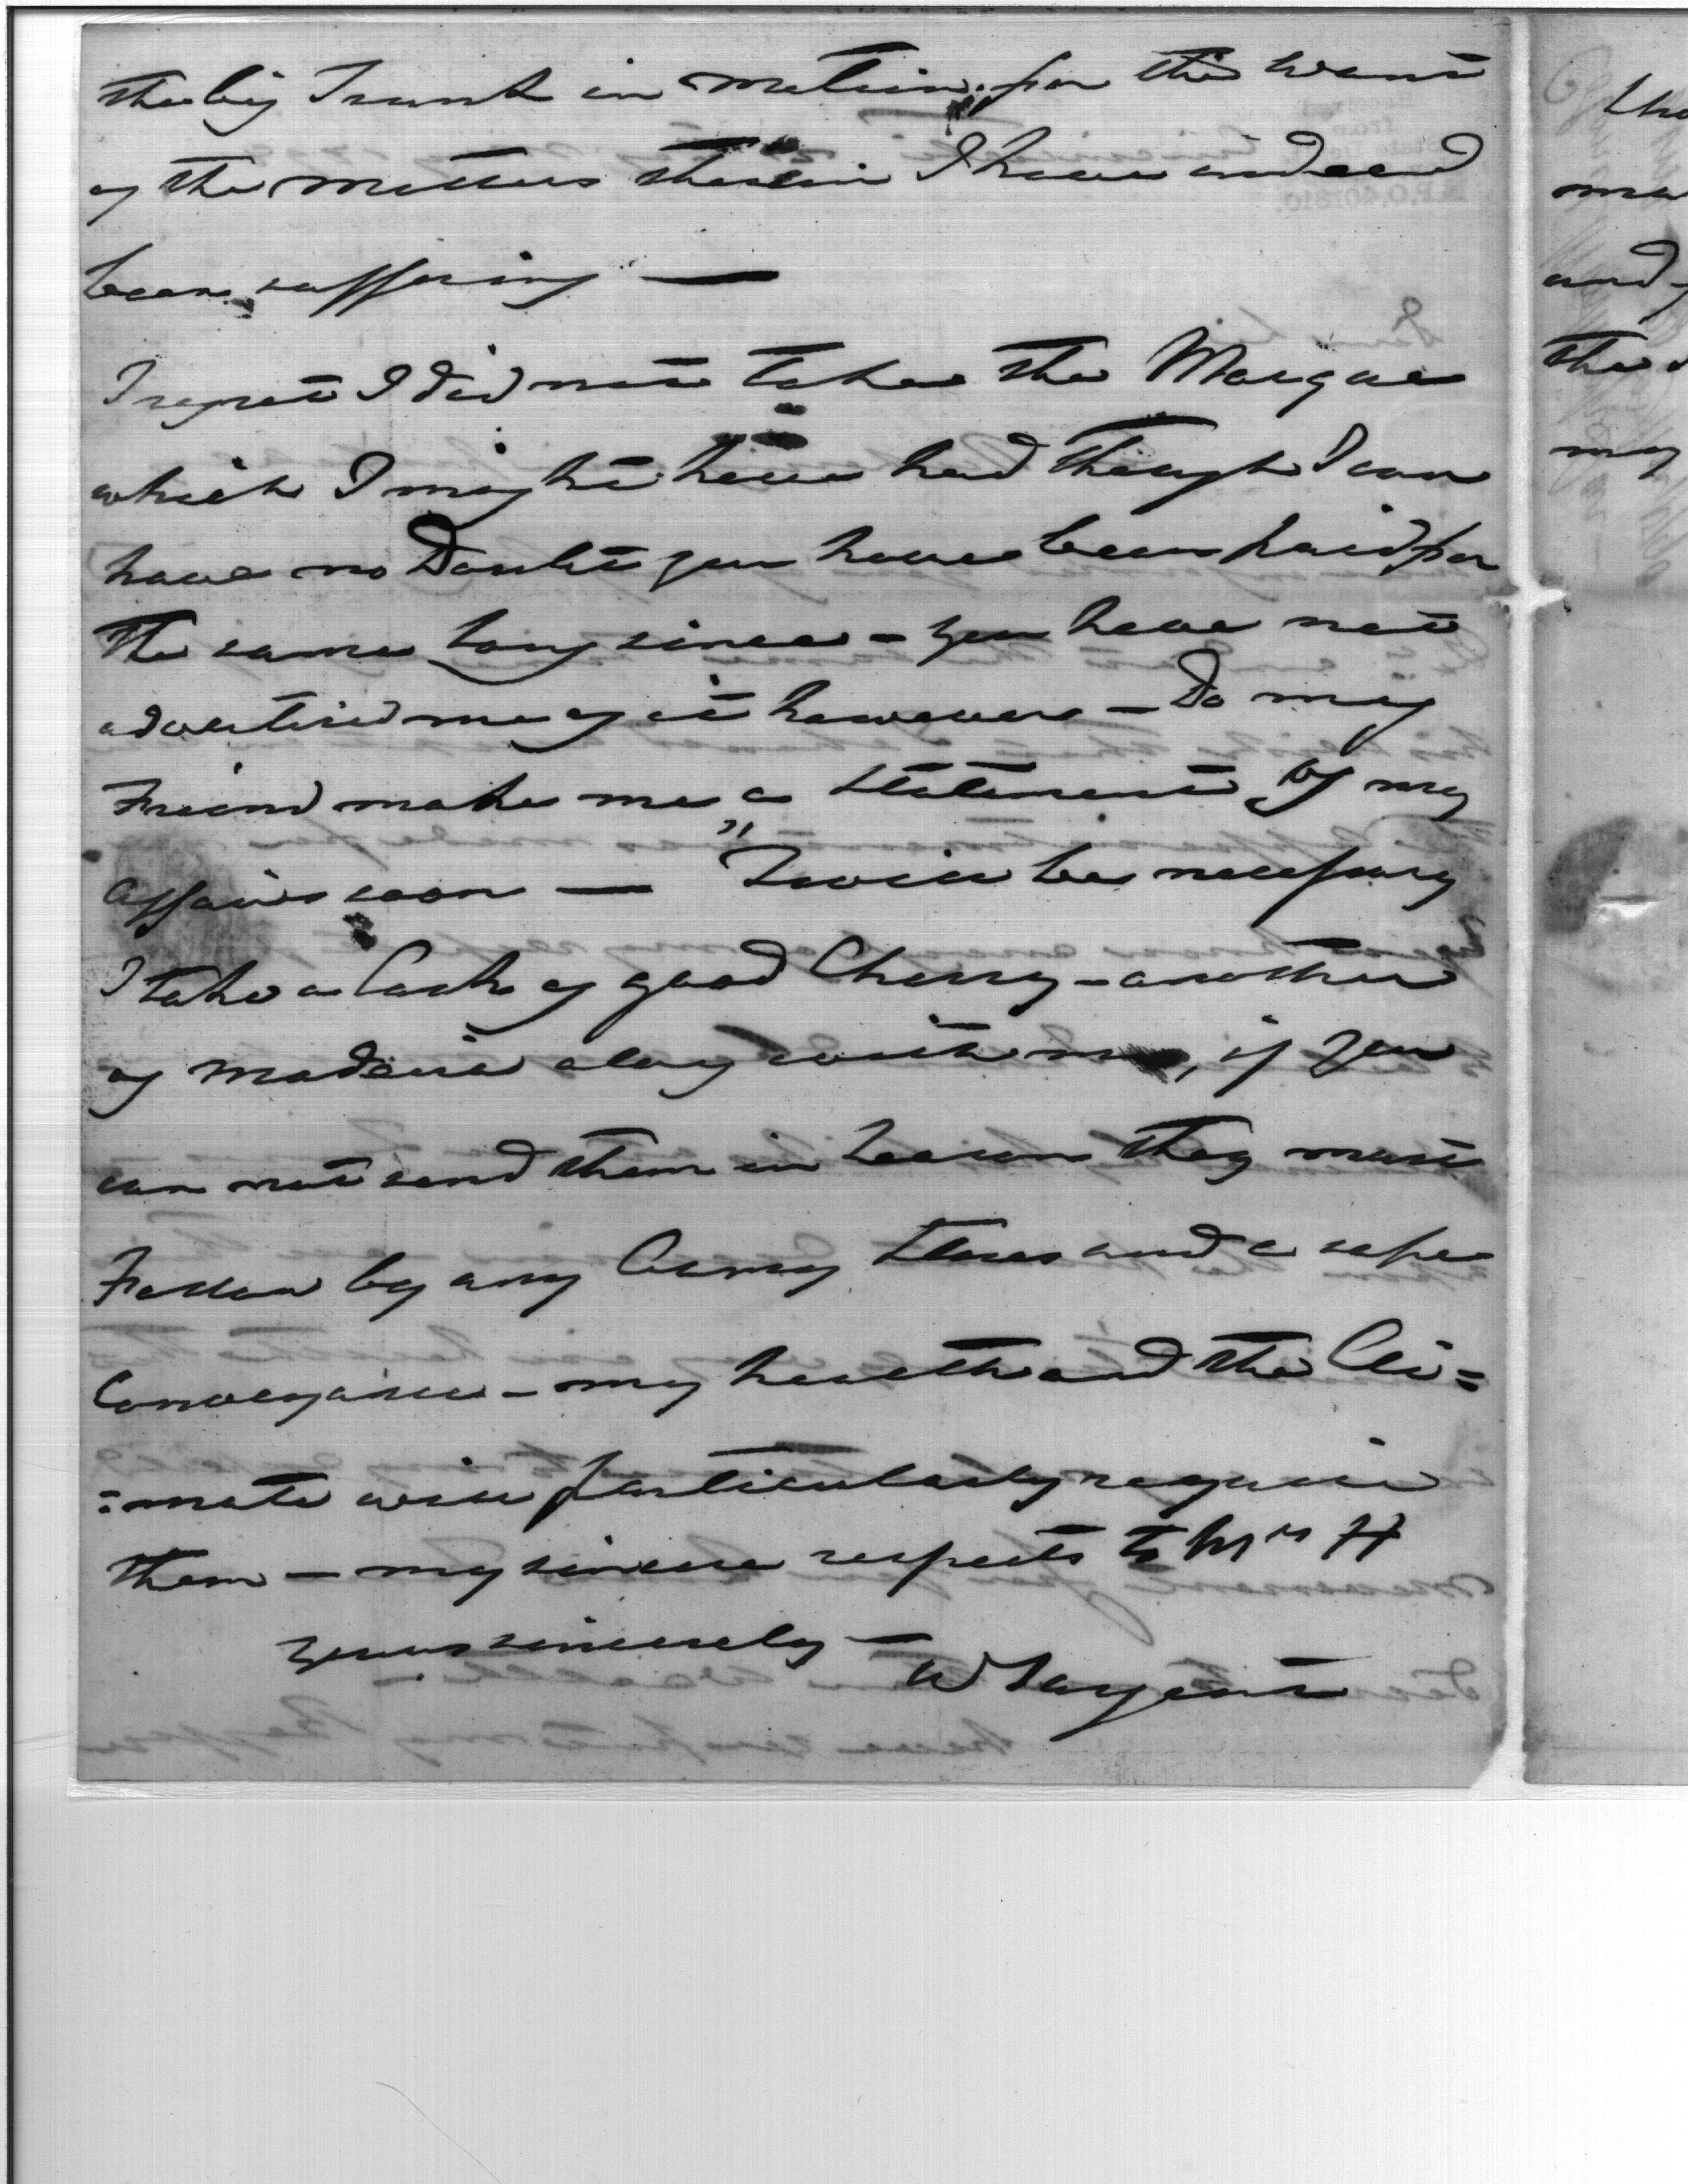 the big Trunk in motion. for the want
of the matters therein I have indeed
been suffering —
I regret I did not take the Marquee
which I might have had though I can
have no Doubt you have been paid for
the same long since – you have not
advertised me of it however – Do my
Friend make me a Statement of my
affairs soon — Twill be necessary
I take a Cask of good Cherry – another
of Madeira along with me, if you
can not send them in Season they must
Follow by any Army Stores and a safe
Conveyance – my health and the Cli=
=mate will particularly require
them – my sincere respects to Mrs H
yours sincerely –
W Sargent
the
ma
and
the
may